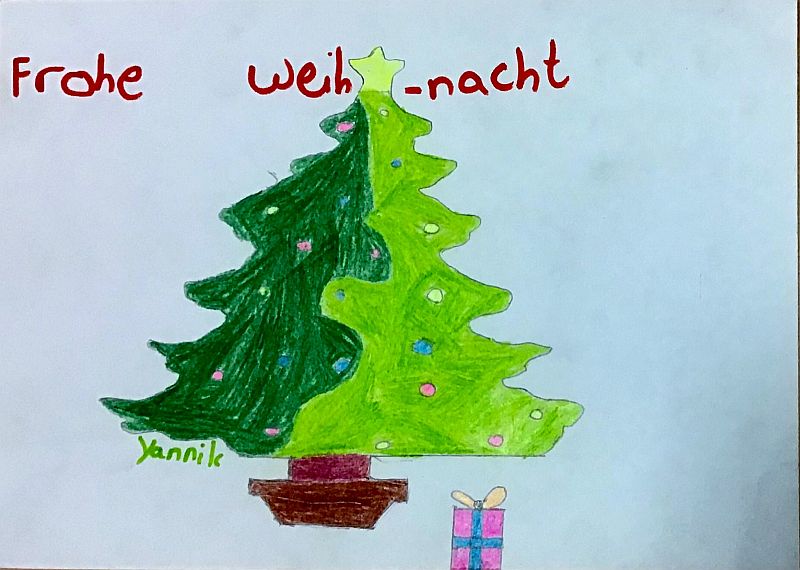 Frohe Weih-nacht
Yannik